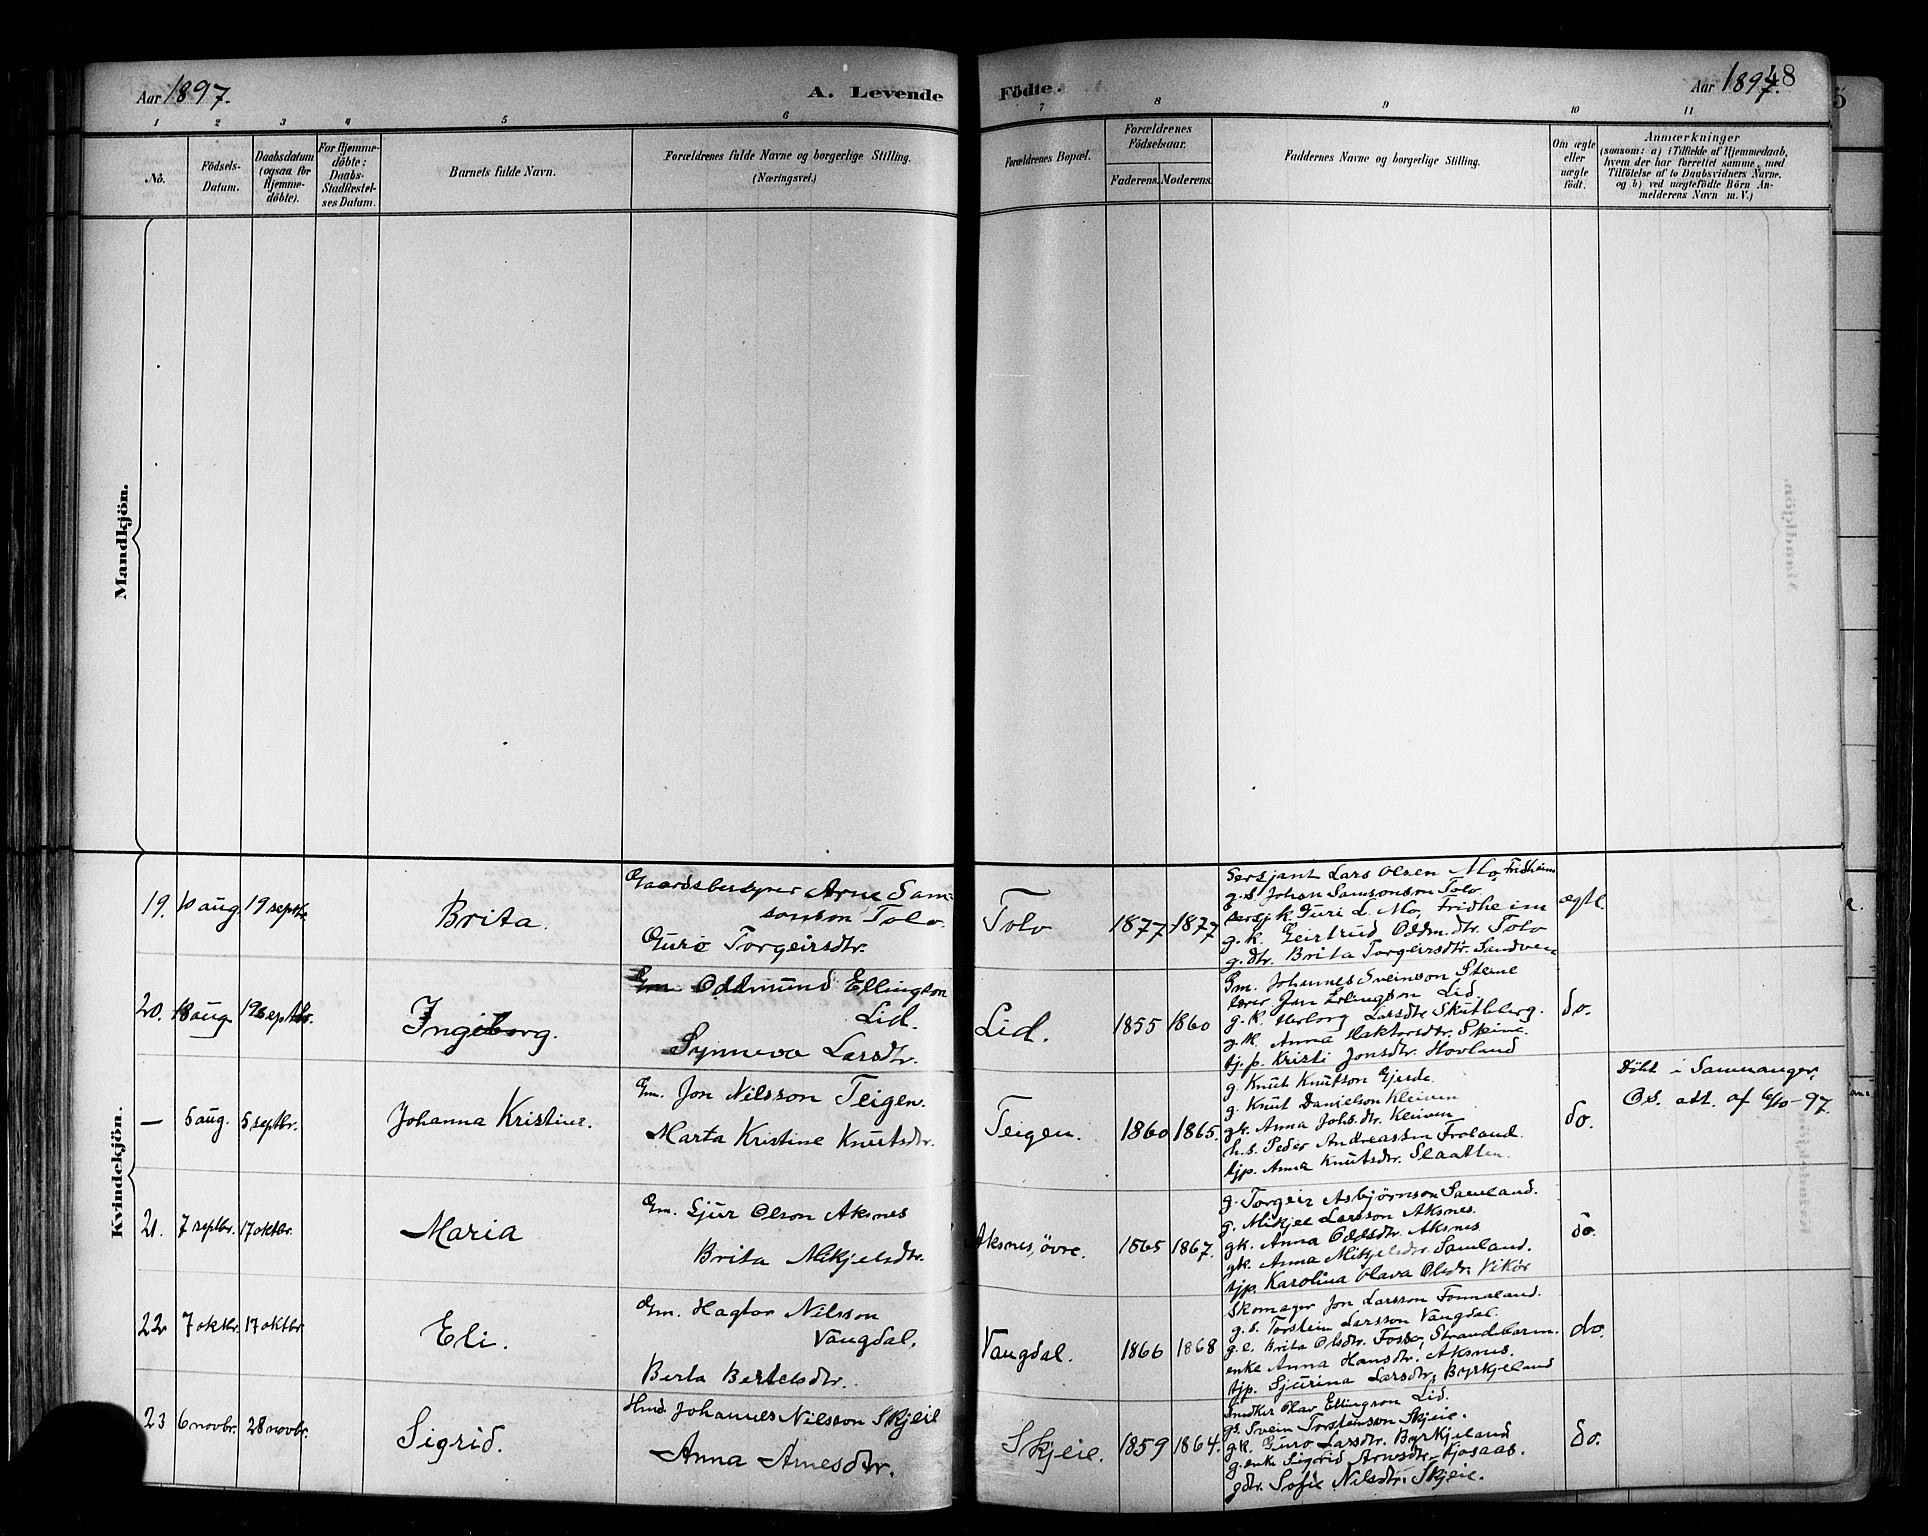 Aar 1897.
A. Levende
Födte.
Aar 1897.
48
1 2 3 4 5 6 7 8 9 10 11
No.
Födsels-
Datum.
Daabsdatum
(ogsaa for
Hjemme-
döbte).
For Hjemme-
döbte:
Daabs-
Stadfæstel-
ses Datum.
Barnets fulde Navn.
Forældrenes fulde Navne og borgerlige Stilling.
(Næringsvei.)
Forældrenes Bopæl.
Forældrenes
Födselsaar.
Faderens. Moderens.
Faddernes Navne og borgerlige Stilling.
Om ægte
eller
uægte
födt.
Anmærkninger
(saasom: a) i Tilfælde af Hjemmedaab,
hvem der har forrettet samme, med
Tilföielse af to Daabsvidners Navne.
og b) ved uægtefödte Börn An-
melderens Navn m. V.)
Mandkjön.
Kvindekjön.
19. 10 aug 19 septbr
Brita.
Gaardsbestyrer Arne Sam-
sonson Tolo.
Guro Torgeirsdtr.
Tolo
1877 1877
Sersjant Lars Olsen Mo, Fridheim
g. s. Johan Samsonson Tolo.
sersj. k. Guri L. Mo, Fridheim
g. k. Geirtrud Oddm.dtr. Tolo
g. dtr. Brita Torgeirsdtr. Sandven
ægte.
20. 18 aug 19 septbr.
Ingeborg.
Gm. Oddmund Ellingson
Lid.
Synneva Larsdtr.
Lid.
1855 1860
Gm. Johannes Sveinson Steine
lærer Jan Erlingson Lid
g. k. Herborg Larsdtr Skutlberg.
g. k. Anna Haktorsdtr. Steine.
tj. p. Kristi Jonsdtr. Hovland
do.
— 5 aug. 5 septbr.
Johanna Kristine.
Gm. Jon Nilsson Teigen.
Marta Kristine Knutsdtr.
Teigen.
1860 1865.
g. Knut Knutson Gjerde.
g. Knut Danielson Kleiven
gk. Anna Johs.dtr. Kleiven
h. s. Peder Andreassen Froland.
tjp. Anna Knutsdtr. Slaatten.
do.
Döbt i Samnanger,
Os. att. af 6/10-97.
21. 7 septbr. 17 oktbr.
Maria
Gm. Sjur Olson Aksnes
Brita Mikjelsdtr.
Aksnes, övre.
1865 1867.
g. Torgeir Asbjörnson Samland.
g. Mikjel Larsson Aksnes.
gk. Anna Oddsdtr. Aksnes
gk. Anna Mikjelsdtr. Samland.
tjp. Karolina Olava Olsdtr. Vikör
do.
22. 7 oktbr. 17 oktbr
Eli.
Gm. Hagtor Nilsson
Vangdal.
Berta Bertelsdtr.
Vangdal.
1866 1868
Skomager Jon Larsson Fonnaland.
g. s. Torstein Larsson Vangdal.
g. e. Brita Olsdtr. Fosse, Strandebarm.
enke Anna Hansdtr. Aksnes.
tjp. Sjurina Larsdtr. Byrkjeland
do.
23 6 novbr. 28 novbr.
Sigrid.
Hmd. Johannes Nilsson Skjeie
Anna Arnesdtr.
Skjeie.
1859 1864.
Snedker Olav Ellingson Lid.
gs. Svein Torsteinson Skjeie.
gk. Guro Larsdtr. Byrkjeland
g. enke Sigrid Arnesdtr. Kjosaas.
gdtr. Sofie Nilsdtr. Skjeie.
do.